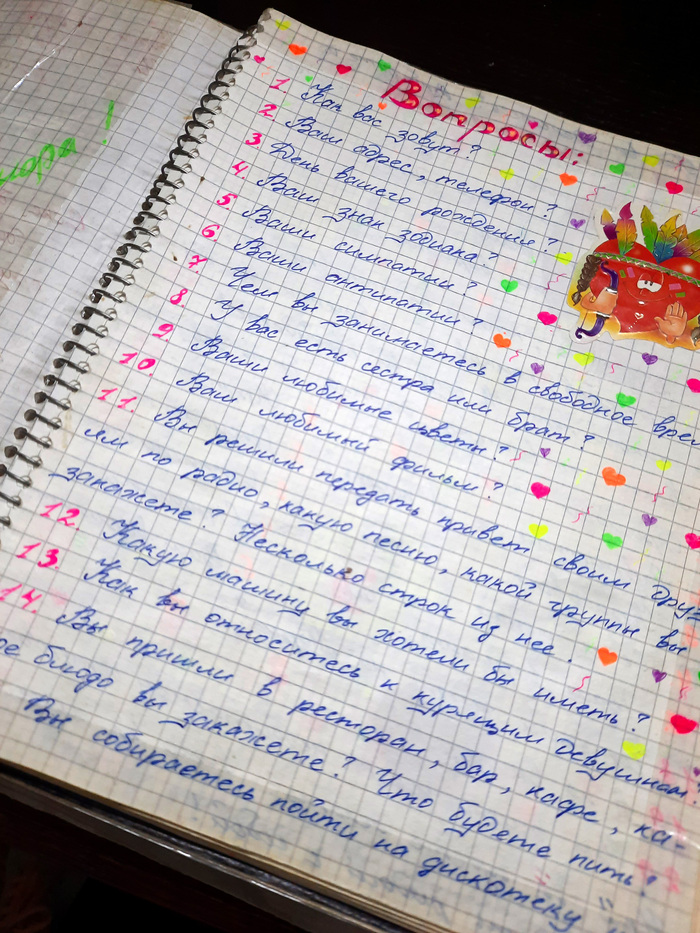 нора!
Вопросы:
1 Как вас зовут?
2 Ваш адрес, телефон?
3 День вашего рождения?
4. Ваш знак зодиака?
5 Ваши симпатии?
6 Ваши антипатии?
7 Чем вы занимаетесь в свободное врем
8 У вас есть сестра или брат?
9 Ваши любимые цветы?
10. Ваш любимый фильм?
11. Вы решили передать привет своим друз
ям по радио, какую песню, какой группы вы
закажете? Несколько строк из нее.
12. Какую машину вы хотели бы иметь?
13. Как вы относитесь к курящим девушкам?
14. Вы пришли в ресторан, бар, кафе, ка-
ое блюдо вы закажете? Что будете пить?
Вы собираетесь пойти на дискотеку